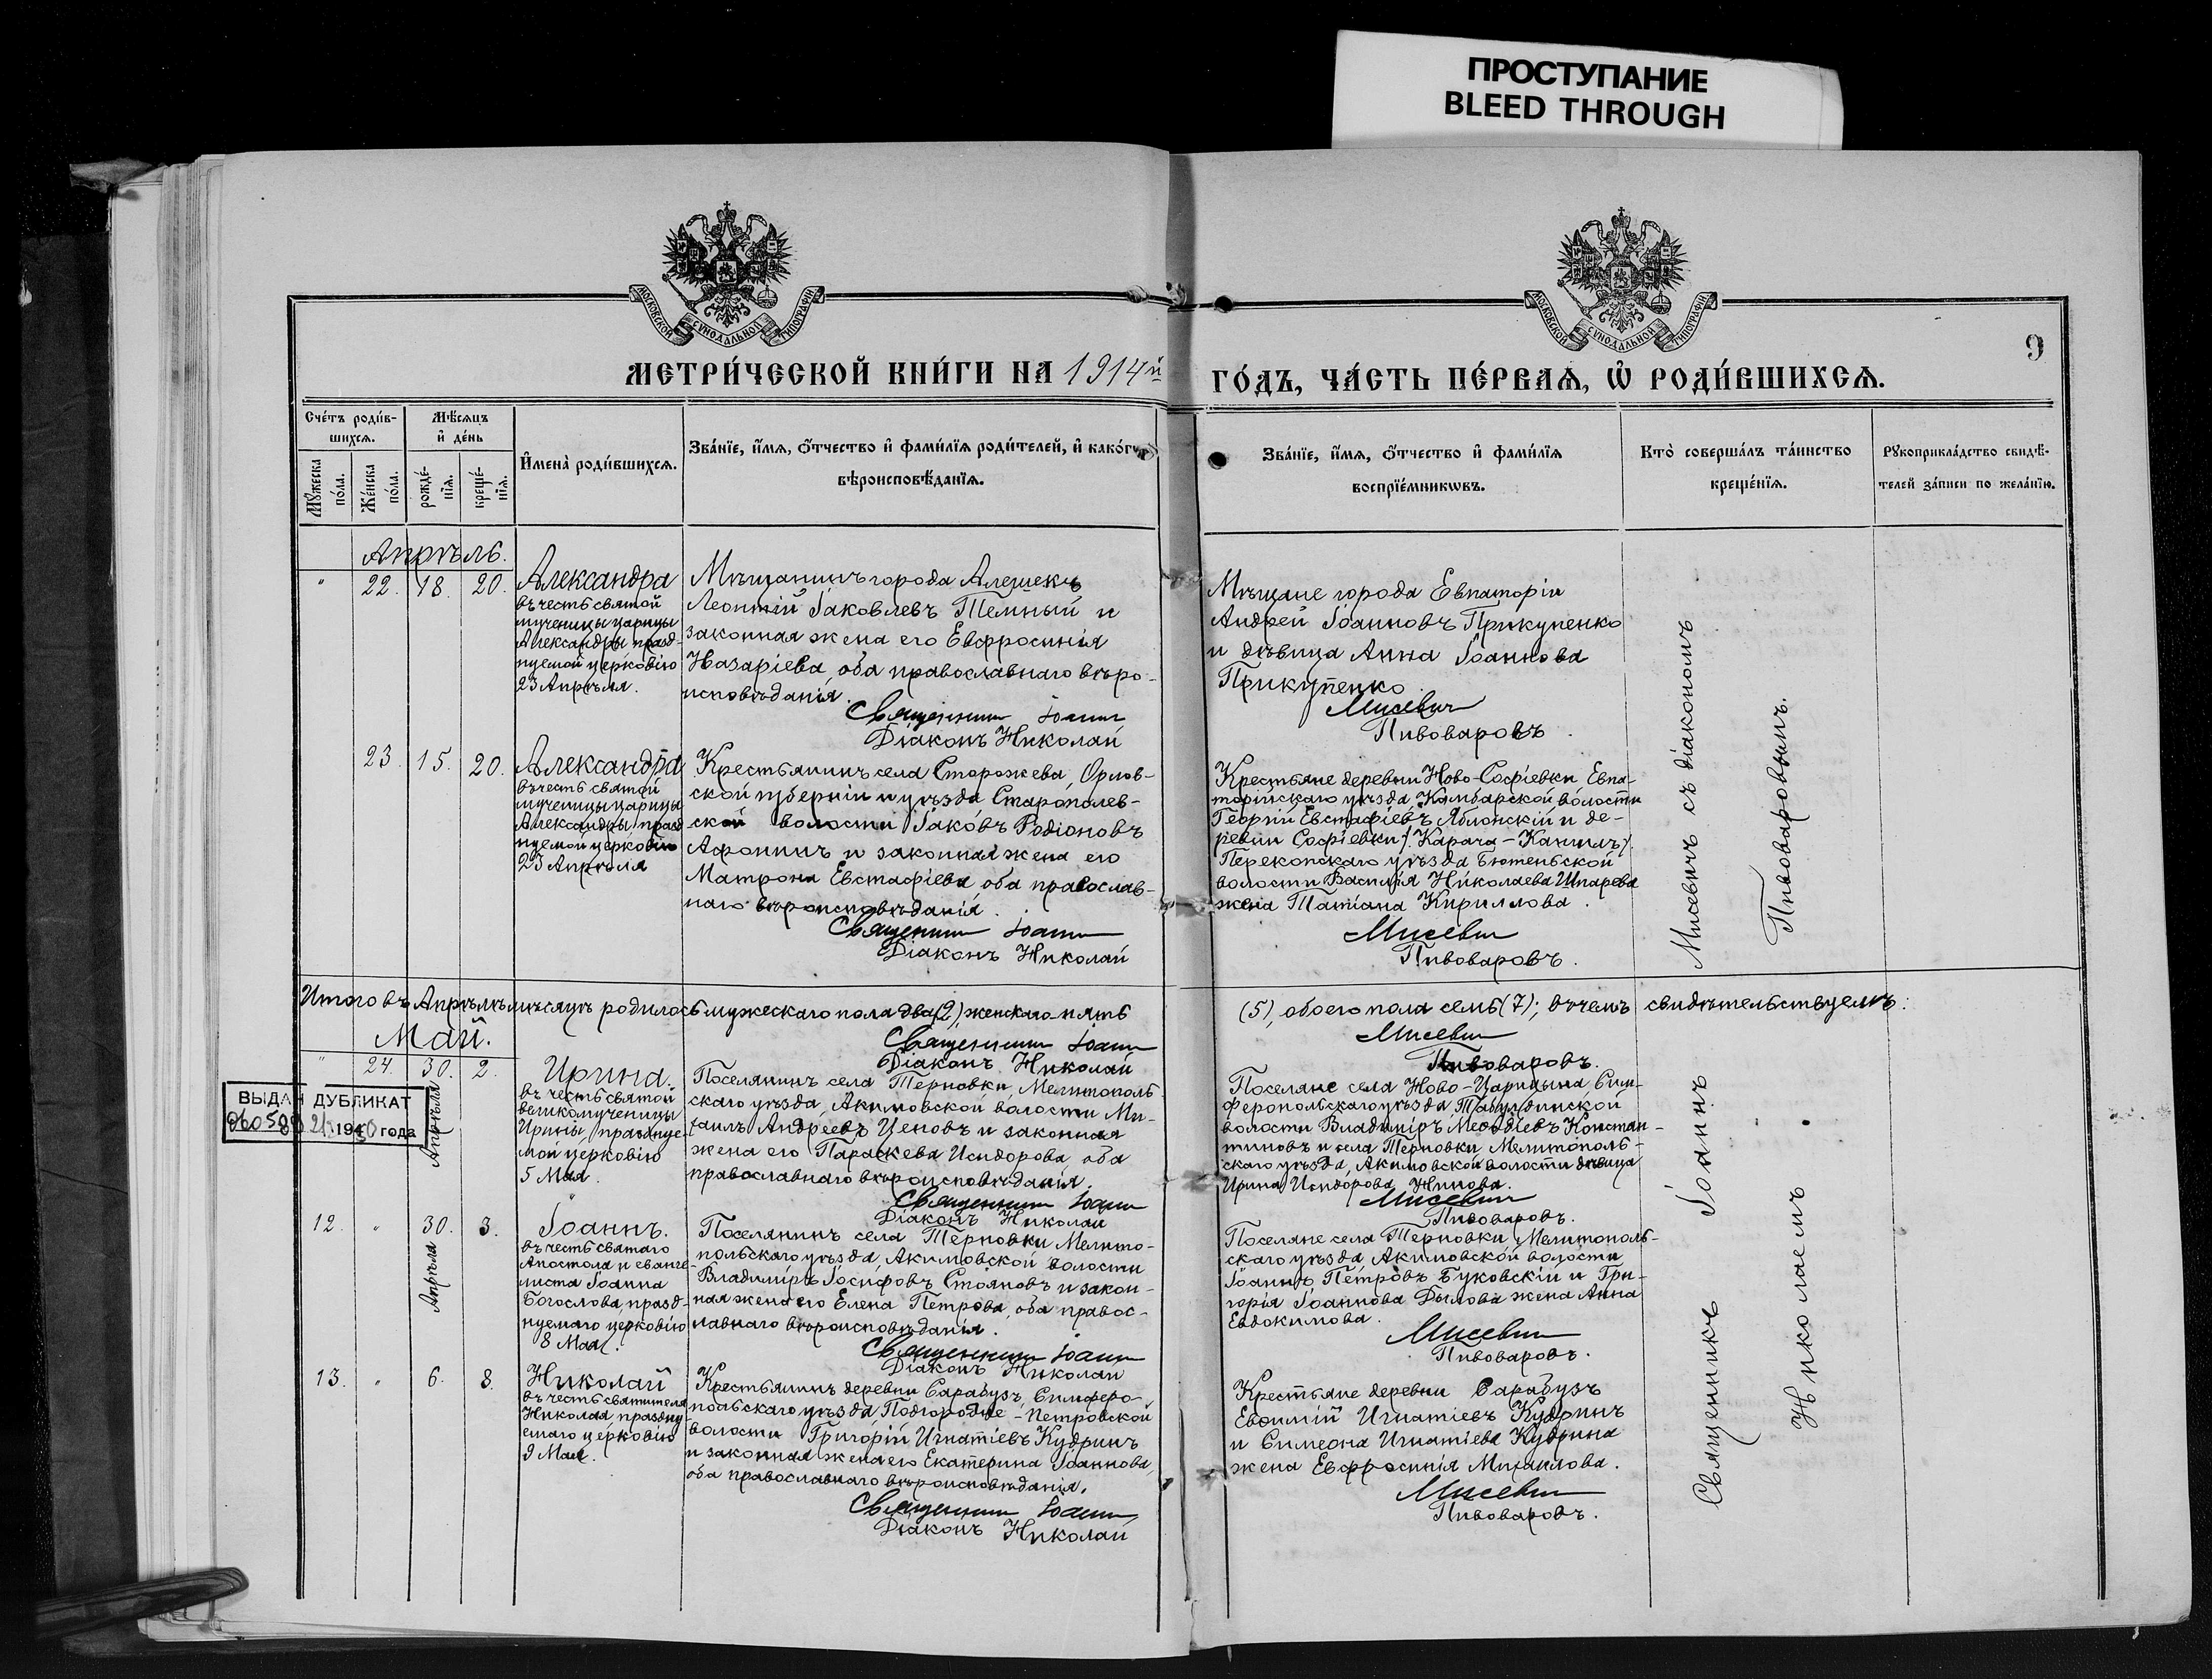 ПРОСТУПАНИЕ
BLEED THROUGH
МОСКОВСКОЙ СѴНОДАЛЬНОЙ ТИПОГРАФІИ
МОСКОВСКОЙ СѴНОДАЛЬНОЙ ТИПОГРАФІИ
9
МЕТРИ́ЧЕСКОЙ КНИ́ГИ НА 1914й
ГО́ДЪ, ЧА́СТЬ ПЕ́РВАѦ, Ѡ҆ РОДИ́ВШИХСѦ.
Сче́тъ роди́в-
шихсѧ.
Мѣ́сѧцъ
и҆ де́нь
Мꙋ́жеска
по́ла.
Же́нска
по́ла.
рожде́-
нїѧ.
креще́-
нїѧ.
И҆мена̀ роди́вшихсѧ.
Зва́нїе, и҆́мѧ, ѻ҆́тчество и҆ фами́лїѧ роди́телей, и҆ како́гѡ
вѣроисповѣ́данїѧ.
Зва́нїе, и҆́мѧ, ѻ҆́тчество и҆ фами́лїѧ
воспрїе́мникѡвъ.
Кто̀ соверша́лъ та́инство
креще́нїѧ.
Рꙋкоприкла́дство свидѣ́-
телей за́писи по жела́нїю.
Апрѣль.
" 22. 18. 20.
Александра
въ честь святой
мученицы царицы
Александры, празд-
нуемой церковію
23 Апрѣля.
Мѣщанинъ города Алешекъ
Леонтій Іаковлевъ Темный и
законная жена его Евфросинія
Назаріева, оба православнаго вѣро-
исповѣданія.
Священникъ Іоаннъ
Діаконъ Николай
Мѣщане города Евпаторіи
Андрей Іоанновъ Прикупенко
и дѣвица Анна Іоаннова
Прикупенко
Мисевичъ
Пивоваровъ.
23. 15. 20.
Александра
въ честь святой
мученицы царицы
Александры празд-
нуемой церковію
23 Апрѣля
Крестьянинъ села Сторожева, Орлов-
ской губерніи и уѣзда Старополев-
ской волости Іаковъ Родіоновъ
Афонинъ и законная жена его
Матрона Евстафіева, оба православ-
наго вѣроисповѣданія.
Священникъ Іоаннъ
Діаконъ Николай
Крестьяне деревни Ново-Софіевки Евпа-
торійскаго уѣзда Камбарской волости
Георгій Евстафіевъ Яблонскій и де-
ревни Софіевки /Карача-Кангилъ/
Перекопскаго уѣзда Бютеньской
волости Василія Николаева Шпарева
жена Татіана Кириллова.
Мисевичъ
Пивоваровъ.
Итого въ Апрѣлѣ мѣсяцѣ родилось мужескаго пола два (2), женскаго - пять
(5), обоего пола семь (7); въ чемъ свидѣтельствуемъ:
Священникъ Іоаннъ
Діаконъ Николай
Мисевичъ
Пивоваровъ.
Май.
" 24. 30. Апрѣля 2.
ВЫДАН ДУБЛИКАТ
19 года
Ирина.
въ честь святой
великомученицы
Ирины, празднуе-
мой церковію
5 Мая.
Поселянинъ села Терновки, Мелитополь-
скаго уѣзда, Акимовской волости Ми-
хаилъ Андреевъ Ценовъ и законная
жена его Параскева Исидорова, оба
православнаго вѣроисповѣданія.
Священникъ Іоаннъ
Діаконъ Николай
Поселяне села Ново-Царицына Сим-
феропольскаго уѣзда Табулдинской
волости Владиміръ Меѳодіевъ Констан-
тиновъ и села Терновки Мелитополь-
скаго уѣзда, Акимовской волости дѣвица
Ирина Исидорова Нинова.
Мисевичъ
Пивоваровъ.
12. " 30. Апрѣля 3.
Іоаннъ.
въ честь святаго
Апостола и еванге-
листа Іоанна
Богослова, празд-
нуемаго церковію
8 Мая.
Поселянинъ села Терновки Мелито-
польскаго уѣзда, Акимовской волости
Владиміръ Іосифовъ Стояновъ и закон-
ная жена его Елена Петрова, оба правос-
лавнаго вѣроисповѣданія.
Священникъ Іоаннъ
Діаконъ Николай
Поселяне села Терновки Мелитополь-
скаго уѣзда, Акимовской волости
Іоаннъ Петровъ Буковскій и Гри-
горія Іоаннова Дылова жена Анна
Евдокимова.
Мисевичъ
Пивоваровъ.
13. " 6. 8.
Николай
въ честь святителя
Николая, праздну-
емаго церковію
9 Мая.
Крестьянинъ деревни Сарабузъ, Симферо-
польскаго уѣзда Подгородне-Петровской
волости Григорій Игнатіевъ Кудринъ
и законная жена его Екатерина Іоаннова
оба православнаго вѣроисповѣданія.
Священникъ Іоаннъ
Діаконъ Николай
Крестьяне деревни Сарабузъ
Евѳимій Игнатіевъ Кудринъ
и Симеона Игнатіева Кудрина
жена Евфросинія Михаилова.
Мисевичъ
Пивоваровъ.
Священникъ Іоаннъ Мисевичъ съ діакономъ
Николаемъ Пивоваровымъ.